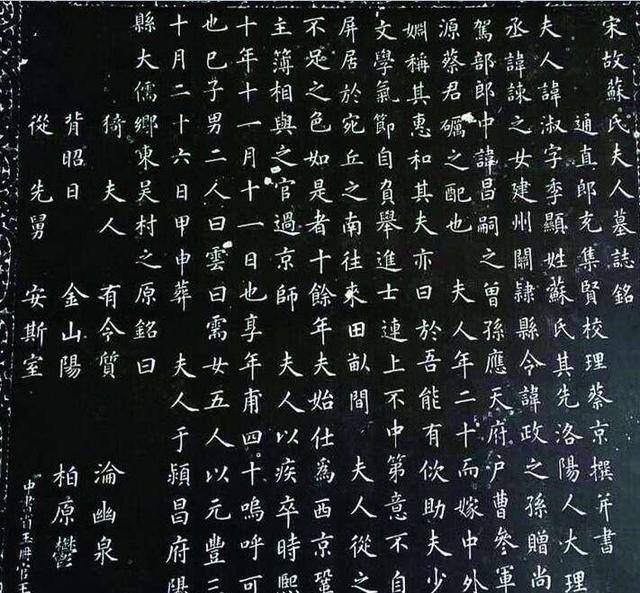 宋故蘇氏夫人墓誌銘
通直郎充集賢校理蔡京撰并書
夫人諱淑字季顯姓蘇氏其先洛陽人大理
丞諱諫之女建州關隸縣令諱政之孫贈尚
駕部郎中諱昌嗣之曾孫應天府戶曹參軍
源蔡君礪之配也 夫人年二十而嫁中外
姻稱其惠和其夫亦曰於吾能有佽助夫少
文學氣節自負舉進士連上不中第意不自
屏居於宛丘之南往來田畝間 夫人從之
不足之色如是者十餘年夫始仕為西京鞏
主簿相與之官過京師 夫人以疾卒時熙
十年十一月十一日也享年甫四十嗚呼可
也已子男二人曰雲曰需女五人以元豐三
十月二十六日甲申葬 夫人于潁昌府陽
縣大儒鄉東吳村之原銘曰
猗夫人 有令質 淪幽泉
背昭日 金山陽 柏原鬱
從先舅 安斯室
中書省玉冊官王